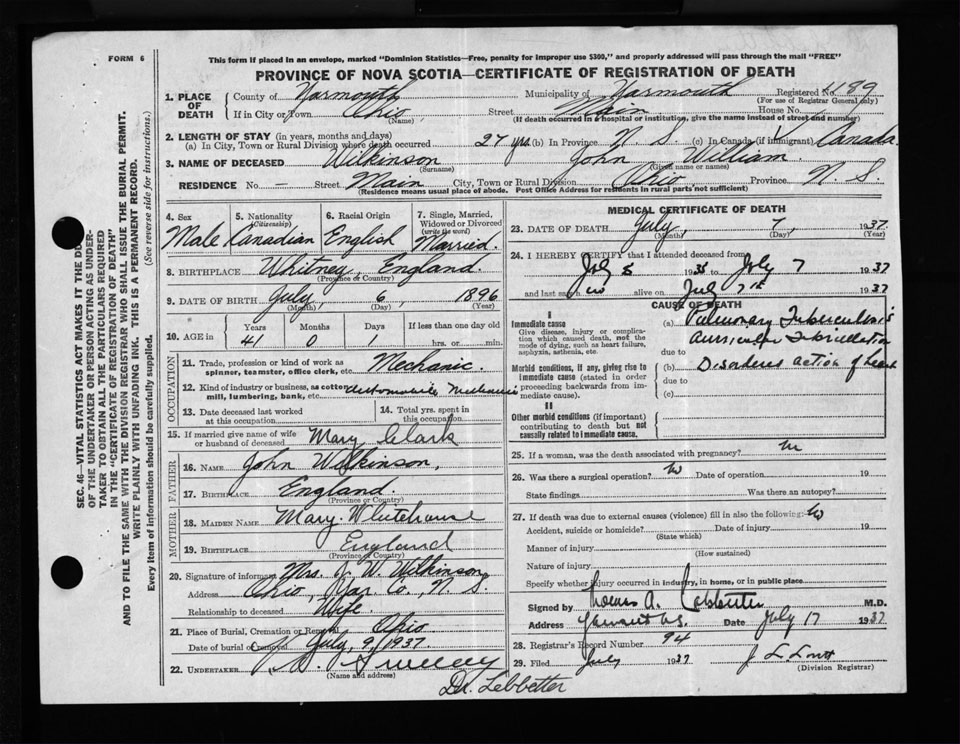 FORM 6
This form if placed in an envelope, marked "Dominion Statistics—Free, penalty for improper use $300," and properly addressed will pass through the mail "FREE"
PROVINCE OF NOVA SCOTIA—CERTIFICATE OF REGISTRATION OF DEATH
1. PLACE OF DEATH County of Yarmouth Municipality of Yarmouth Registered No. 189
(For use of Registrar General only)
If in City or Town Ohio (Name) Street Main House No.
(If death occurred in a hospital or institution, give the name instead of street and number)
2. LENGTH OF STAY (in years, months and days)
(a) In City, Town or Rural Division where death occurred 27 yrs (b) In Province N. S. (c) In Canada (if immigrant) Canada
3. NAME OF DECEASED Wilkinson John William
(Surname) (Given name or names)
RESIDENCE No. — Street Main City, Town or Rural Division Ohio Province N. S.
(Residence means usual place of abode. Post Office Address for residents in rural parts not sufficient)
4. Sex Male
5. Nationality (Citizenship) Canadian
6. Racial Origin English
7. Single, Married, Widowed or Divorced (write the word) Married.
8. BIRTHPLACE Whitney, England.
(Province or Country)
9. DATE OF BIRTH July, 6, 1896
(Month) (Day) (Year)
10. AGE in Years 41 Months 0 Days 1 If less than one day old hrs. or min.
OCCUPATION
11. Trade, profession or kind of work as spinner, teamster, office clerk, etc. Mechanic.
12. Kind of industry or business, as cotton mill, lumbering, bank, etc. Automobile Mechanic
13. Date deceased last worked at this occupation
14. Total yrs. spent in this occupation
15. If married give name of wife or husband of deceased Mary Clark
FATHER
16. NAME John Wilkinson,
17. BIRTHPLACE England.
(Province or Country)
MOTHER
18. MAIDEN NAME Mary Whitehouse
19. BIRTHPLACE England
(Province or Country)
20. Signature of informant Mrs. J. W. Wilkinson
Address Ohio, Yar. Co., N. S.
Relationship to deceased Wife.
21. Place of Burial, Cremation or Removal Ohio
Date of burial or removal July, 9, 1937.
22. UNDERTAKER Sweeney
(Name and address)
Dr. Lebbetter
MEDICAL CERTIFICATE OF DEATH
23. DATE OF DEATH July, 7 1937
(Month) (Day) (Year)
24. I HEREBY CERTIFY that I attended deceased from
July 8 1935 to July 7 1937
and last saw alive on July 7th 1937
CAUSE OF DEATH
I
Immediate cause
Give disease, injury or complication, which caused death, not the mode of dying, such as heart failure, asphyxia, asthenia, etc.
(a) Pulmonary Tuberculosis
Auricular Fibrillation
due to
Morbid conditions, if any, giving rise to immediate cause (stated in order proceeding backwards from immediate cause).
(b) Disordered action of heart
due to
(c)
II
Other morbid conditions (if important) contributing to death but not causally related to immediate cause.
25. If a woman, was the death associated with pregnancy?
26. Was there a surgical operation? No Date of operation 19
State findings Was there an autopsy?
27. If death was due to external causes (violence) fill in also the following: No
Accident, suicide or homicide? Date of injury 19
(State which)
Manner of injury
(How sustained)
Nature of injury
Specify whether injury occurred in industry, in home, or in public place
Signed by A. Lebbetter M.D.
Address Yarmouth N.S. Date July 17 1937
28. Registrar's Record Number 94
29. Filed July 1937
(Division Registrar)
SEC. 46—VITAL STATISTICS ACT MAKES IT THE DU
OF THE UNDERTAKER OR PERSON ACTING AS UNDER-
TAKER TO OBTAIN ALL THE PARTICULARS REQUIRED
IN THE "CERTIFICATE OF REGISTRATION OF DEATH"
AND TO FILE THE SAME WITH THE DIVISION REGISTRAR WHO SHALL ISSUE THE BURIAL PERMIT.
WRITE PLAINLY WITH UNFADING INK. THIS IS A PERMANENT RECORD.
Every item of information should be carefully supplied. (See reverse side for instructions.)